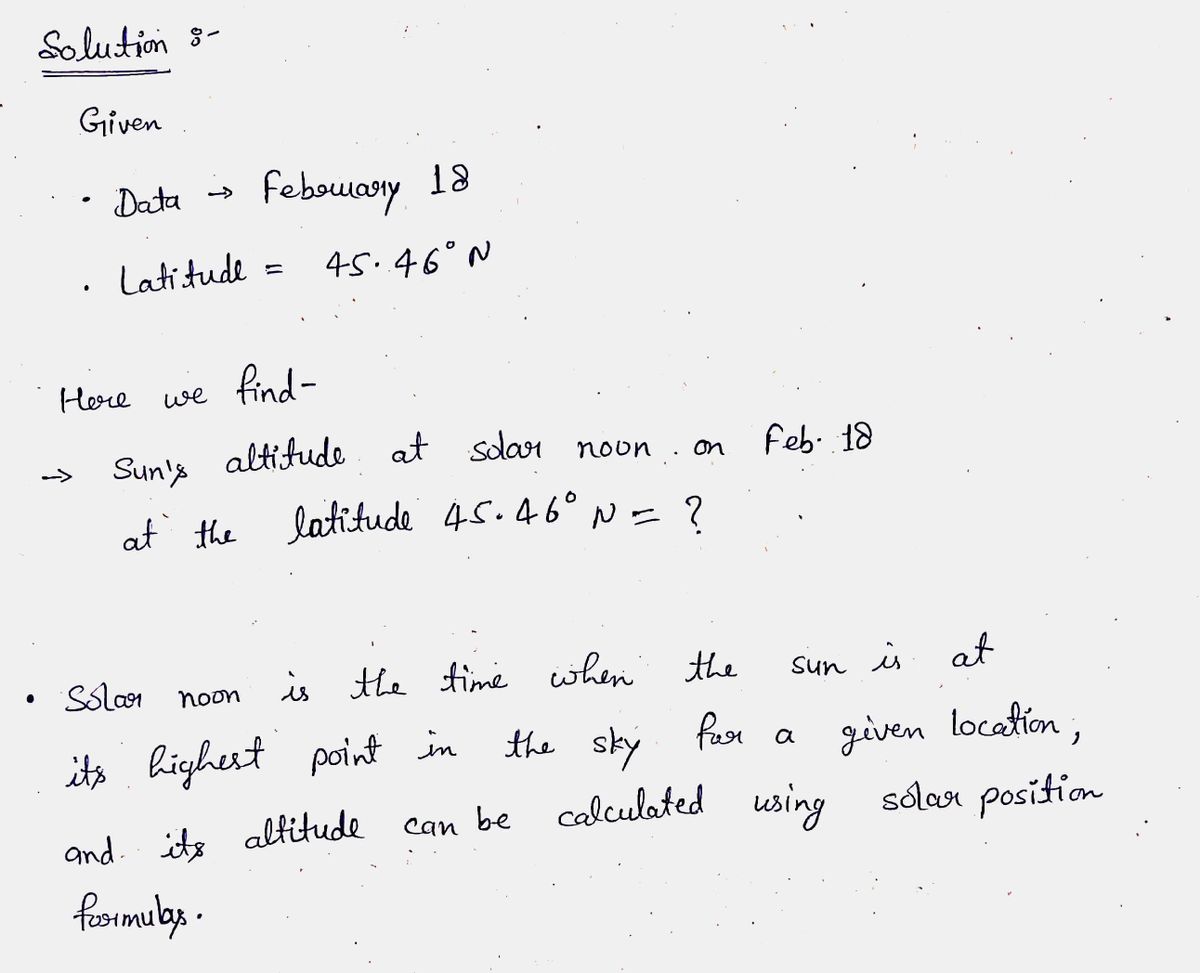 Solution :-
Given
• Data → February 18
• Latitude = 45.46° N
Here we find-
→ Sun's altitude at solar noon . on Feb. 18
at the latitude 45.46° N = ?
• Solar noon is the time when the sun is at
its highest point in the sky for a given location ,
and its altitude can be calculated using solar position
formulas.